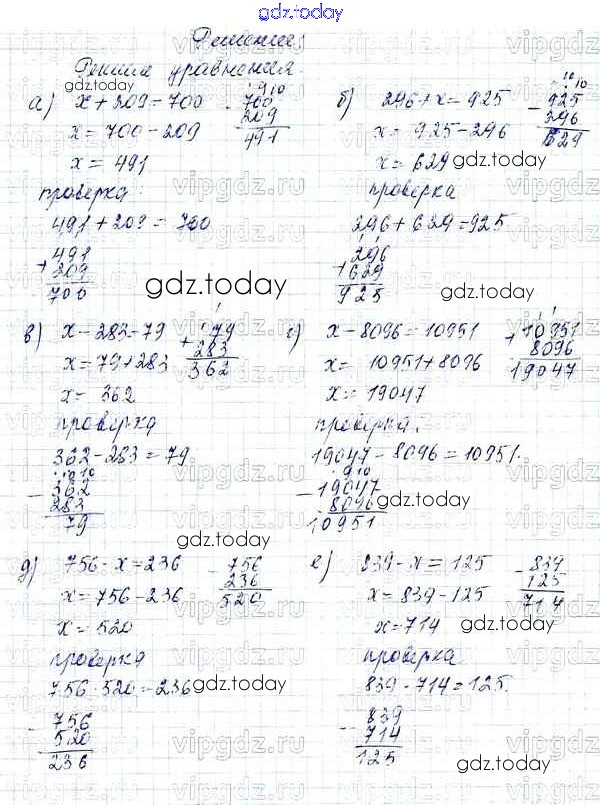 gdz.today
Решение
Решим уравнения.
а) x + 209 = 700
x = 700 - 209
x = 491
- 700
209
491
проверка:
491 + 209 = 700
+ 491
209
700
б) 296 + x = 925
x = 925 - 296
x = 629
- 925
296
629
проверка
296 + 629 = 925
296
+ 629
925
в) x - 283 = 79
x = 79 + 283
x = 362
+ 79
283
362
проверка
362 - 283 = 79
- 362
283
79
г) x - 8096 = 10951
x = 10951 + 8096
x = 19047
+ 10951
8096
19047
проверка.
19047 - 8096 = 10951.
- 19047
8096
10951
д) 756 - x = 236
x = 756 - 236
x = 520
- 756
236
520
проверка
756 - 520 = 236
- 756
520
236
е) 839 - x = 125
x = 839 - 125
x = 714
- 839
125
714
проверка
839 - 714 = 125.
- 839
714
125
gdz.today
vipgdz.ru